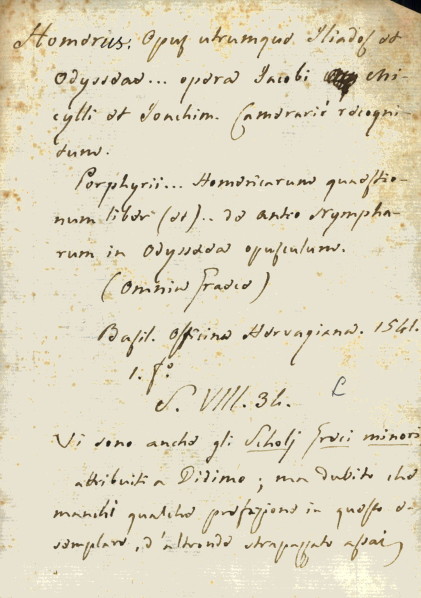 Homerus. Opus utrumque Iliados et
Odysseae... opera Jacobi Mi-
cylli et Joachim. Camerarii recogni-
tum.
Porphyrii... Homericarum quaestio-
num liber (et).. de antro Nympha-
rum in Odyssea opusculum.
(Omnia Graece)
Basil. Officina Hervagiana. 1541.
1. fo.
S. VIII. 34.
Vi sono anche gli Scholj Greci minori
attribuiti a Didimo; ma dubito che
manchi qualche prefazione in questo e-
semplare, d'altronde strapazzato assai